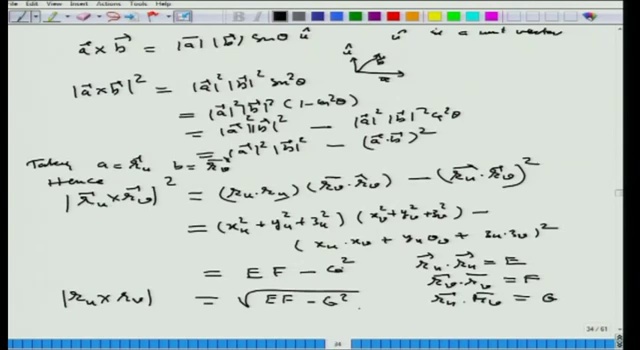 File Edit View Insert Actions Tools Help
a⃗ × b⃗ = |a⃗| |b⃗| sinθ û    û is a unit vector
|a⃗ × b⃗|² = |a⃗|² |b⃗|² sin²θ
= |a⃗|² |b⃗|² (1 - cos²θ)
= |a⃗|² |b⃗|² - |a⃗|² |b⃗|² cos²θ
= |a⃗|² |b⃗|² - (a⃗ · b⃗)²
Taking a = r⃗u b = r⃗v
Hence
|r⃗u × r⃗v|² = (ru . ru) (r⃗v . r⃗v) - (r⃗u . r⃗v)²
= (xu² + yu² + zu²) (xv² + yv² + zv²) -
(xu . xv + yu yv + zu . zv)²
= EF - G²    r⃗u . r⃗u = E
r⃗v . r⃗v = F
|ru × rv| = √EF - G² .    r⃗u . r⃗v = G
34 / 61
34